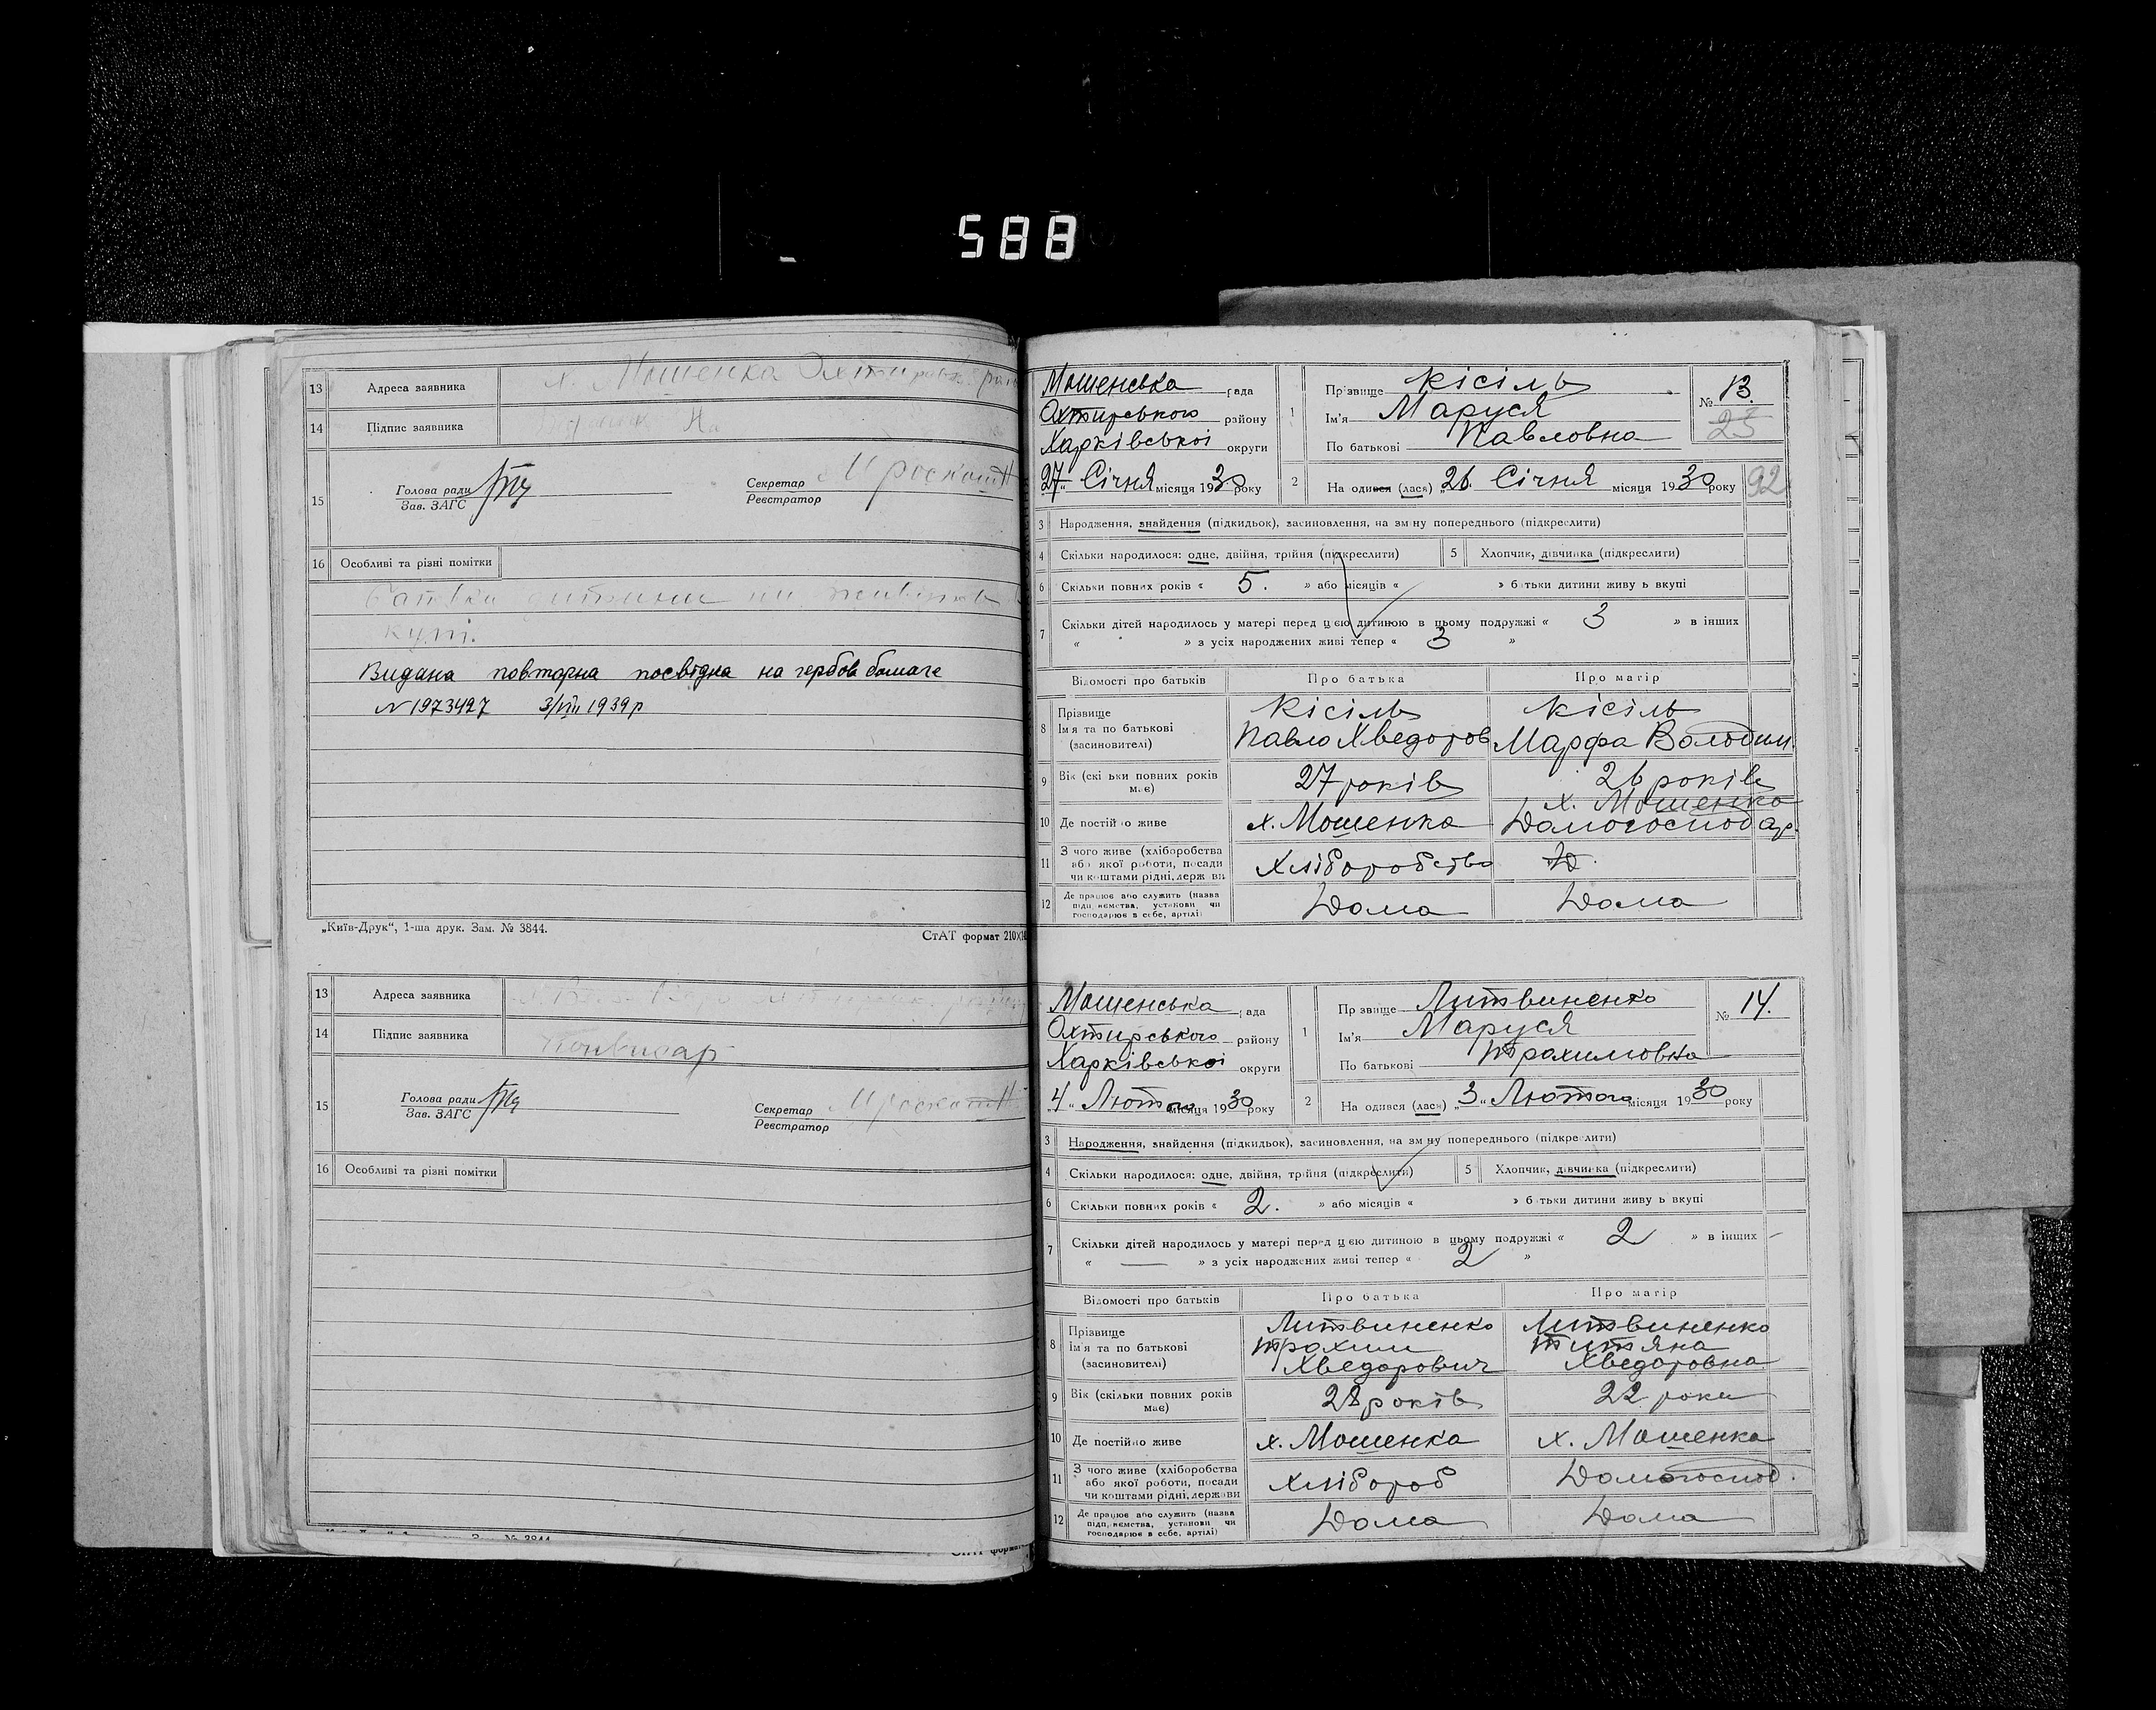 588
13 Адреса заявника х. Мошенка
14 Підпис заявника
15 Голова ради
Зав. ЗАГС
Секретар
Реєстратор
16 Особливі та різні помітки
купі.
Видана повторна посвідка на гербов бомаге
N 1973427 3/VIII 1939р
„Київ-Друк“, 1-ша друк. Зам. № 3844.
СтАТ формат 210×
13 Адреса заявника
14 Підпис заявника
15 Голова ради
Зав. ЗАГС
Секретар
Реєстратор
16 Особливі та різні помітки
№ 3844
Мошенська рада
Охтирського району
Харківської округи
27 Січня місяця 1930 року
1 Прізвище Кісіль
Ім'я Маруся
По батькові Павловна
№ 13.
23
2 На одився (лася) „26. Січня місяця 1930 року
92
3 Народження, знайдення (підкидьок), засиновлення, на зміну попереднього (підкреслити)
4 Скільки народилося: одне, двійня, трійня (підкреслити) 5 Хлопчик, дівчинка (підкреслити)
6 Скільки повних років « 5. » або місяців « » батьки дитини живуть вкупі
7 Скільки дітей народилось у матері перед цією дитиною в цьому подружжі « 3 » в інших
« » з усіх народжених живі тепер « 3 »
Відомості про батьків Про батька Про матір
8 Прізвище Кісіль Кісіль
Імя та по батькові Павло Хведоров Марфа Володим.
(засиновителі)
9 Вік (скільки повних років має) 27 років 26 років
х. Мошенка
10 Де постійно живе х. Мошенка Домогосподар.
11 З чого живе (хліборобства
або якої роботи, посади Хліборобство
чи коштами рідні, держави
12 Де працює або служить (назва
підприємства, установи чи Дома Дома
господарює в себе, артілі)
Мошенська рада
Охтирського району
Харківської округи
„4“ Лютого місяця 1930 року
1 Прізвище Литвиненко
Ім'я Маруся
По батькові Трахимовна
№ 14.
2 На одився (лася) „3“ Лютого місяця 1930 року
3 Народження, знайдення (підкидьок), засиновлення, на зміну попереднього (підкреслити)
4 Скільки народилося: одне, двійня, трійня (підкреслити) 5 Хлопчик, дівчинка (підкреслити)
6 Скільки повних років « 2. » або місяців « » батьки дитини живуть вкупі
7 Скільки дітей народилось у матері перед цією дитиною в цьому подружжі « 2 » в інших —
« — » з усіх народжених живі тепер « 2 »
Відомості про батьків Про батька Про матір
8 Прізвище Литвиненко Литвиненко
Імя та по батькові Трахим Титяна
(засиновителі) Хведорович Хведоровна
9 Вік (скільки повних років має) 28 років 22 роки
10 Де постійно живе х. Мошенка х. Мошенка
11 З чого живе (хліборобства
або якої роботи, посади Хлібороб Домогоспод.
чи коштами рідні, держави
12 Де працює або служить (назва
підприємства, установи чи Дома Дома
господарює в себе, артілі)